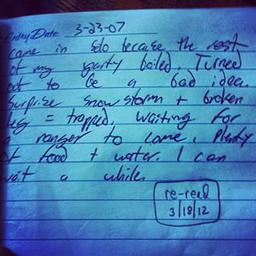 Entry Date 3-23-07
came in solo because the rest
of my party bailed. Turned
out to be a bad idea.
Surprise snow storm + broken
leg = trapped. Waiting for
a ranger to come. Plenty
of food + water. I can
wait a while.
re-read
3/18/12